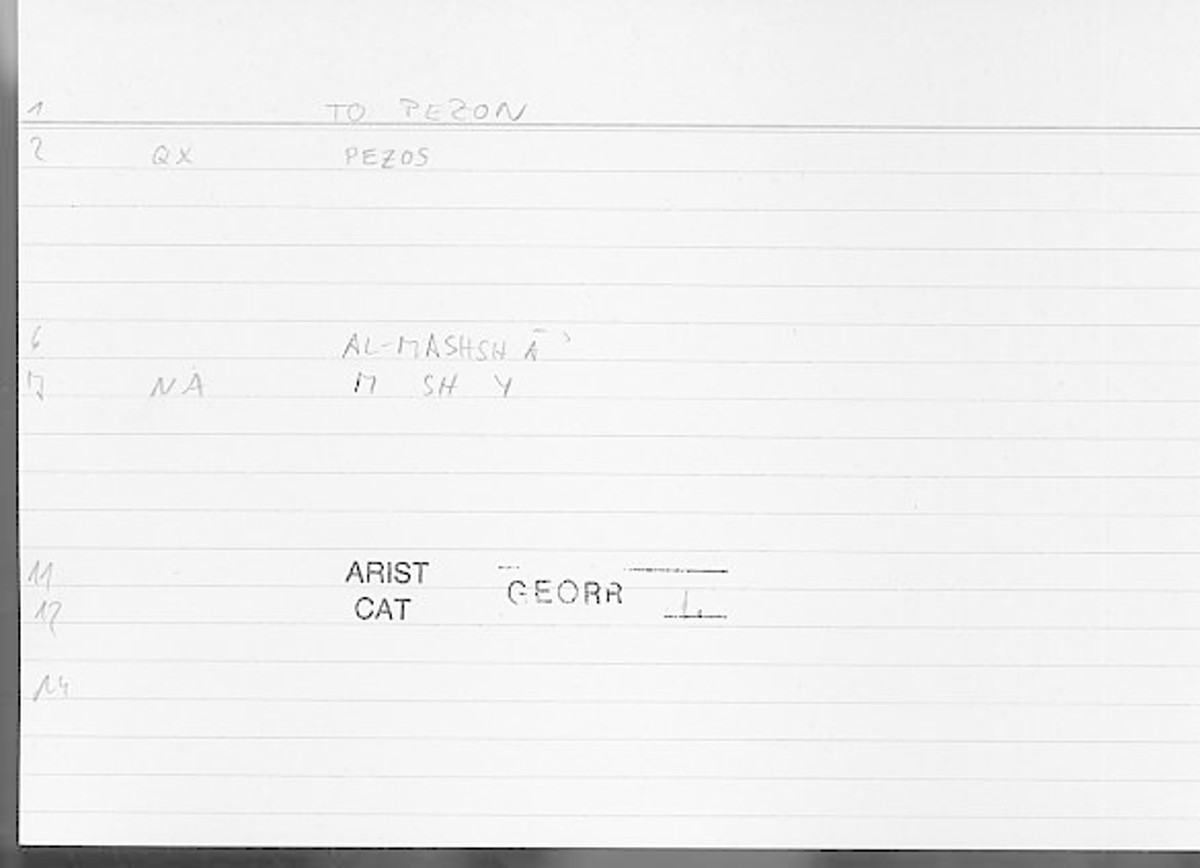 1 TO PEZON
2 QX PEZOS
6 AL-MASHSHĀʾ
7 NA M SH Y
11 ARIST GEORR
12 CAT 1.
14